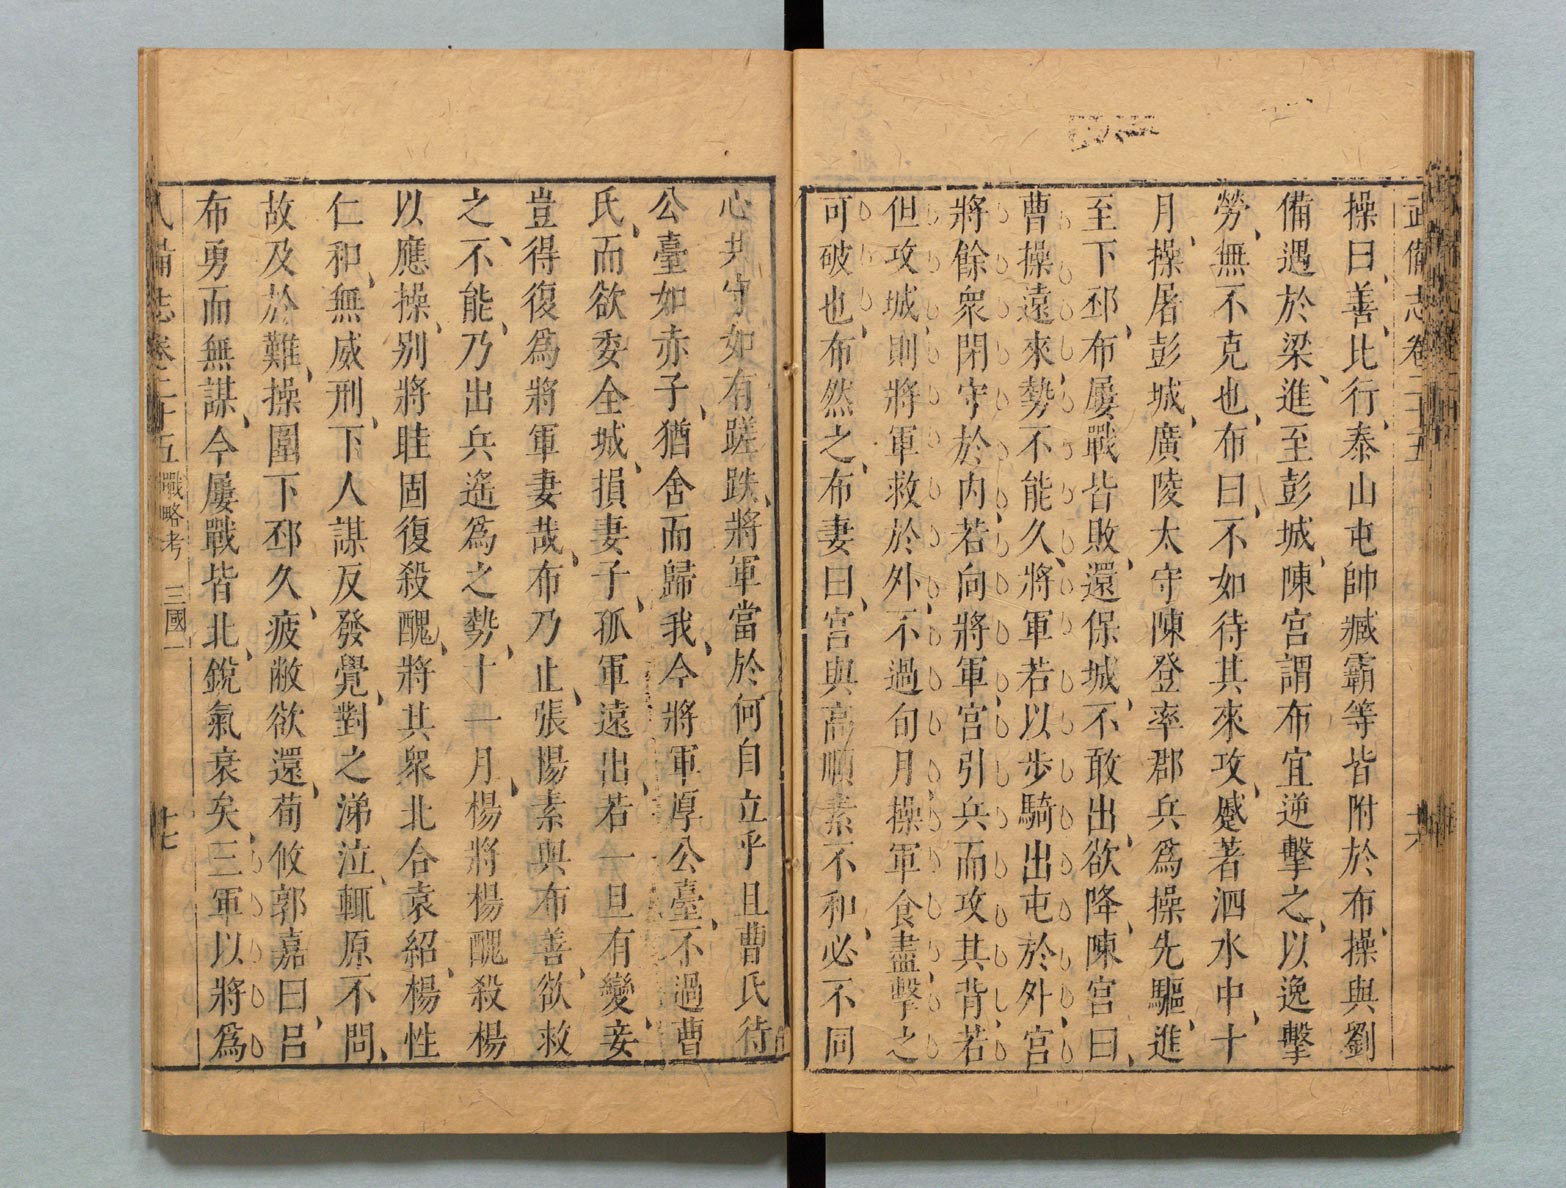 武備志卷二十五
十六
操曰、善、比行、泰山屯帥臧霸等皆附於布、操與劉
備遇於梁、進至彭城、陳宮謂布宜逆擊之、以逸擊
勞、無不克也、布曰、不如待其來攻、蹙著泗水中、十
月、操屠彭城、廣陵太守陳登率郡兵爲操先驅、進
至下邳、布屢戰皆敗、還保城、不敢出、欲降、陳宮曰、
曹操遠來、勢不能久、將軍若以步騎出屯於外、宮
將餘衆閉守於內、若向將軍、宮引兵而攻其背、若
但攻城、則將軍救於外、不過旬月、操軍食盡、擊之
可破也、布然之、布妻曰、宮與高順素不和、必不同
心共守、如有蹉跌、將軍當於何自立乎、且曹氏待
公臺如赤子、猶舍而歸我、今將軍厚公臺、不過曹
氏、而欲委全城、損妻子、孤軍遠出、若一旦有變、妾
豈得復爲將軍妻哉、布乃止、張楊素與布善、欲救
之、不能、乃出兵遙爲之勢、十一月、楊將楊醜殺楊
以應操、別將眭固復殺醜、將其衆北合袁紹、楊性
仁和、無威刑、下人謀反發覺、對之涕泣、輒原不問、
故及於難、操圍下邳久、疲敝欲還、荀攸郭嘉曰、呂
布勇而無謀、今屢戰皆北、銳氣衰矣、三軍以將爲
武備志卷二十五 戰略考 三國一
十七